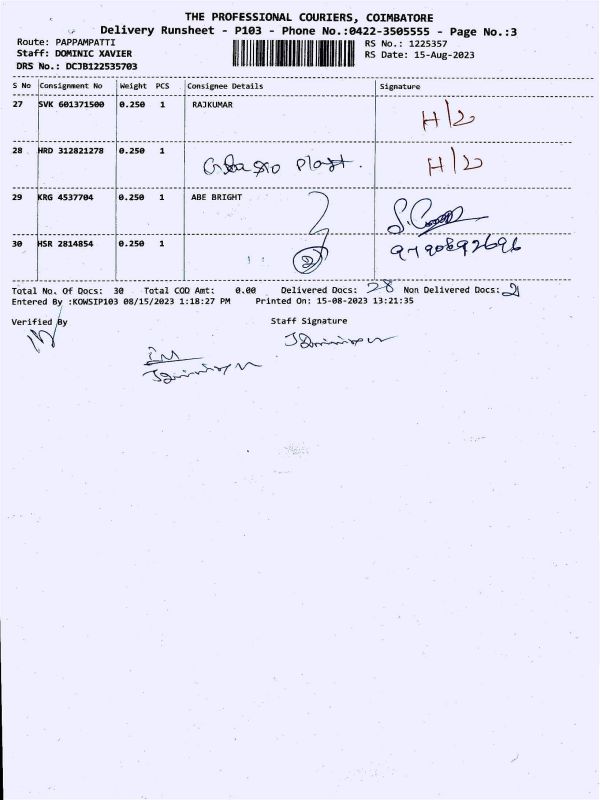 THE PROFESSIONAL COURIERS, COIMBATORE
Delivery Runsheet - P103 - Phone No.:0422-3505555 - Page No.:3
Route: PAPPAMPATTI RS No.: 1225357
Staff: DOMINIC XAVIER RS Date: 15-Aug-2023
DRS No.: DCJB122535703
S No Consignment No Weight PCS Consignee Details Signature
27 SVK 601371500 0.250 1 RAJKUMAR
H/2
28 HRD 312821278 0.250 1
H/2
29 KRG 4537704 0.250 1 ABE BRIGHT
30 HSR 2814854 0.250 1 9790892696
Total No. Of Docs: 30 Total COD Amt: 0.00 Delivered Docs: 28 Non Delivered Docs: 2
Entered By :KOWSIP103 08/15/2023 1:18:27 PM Printed On: 15-08-2023 13:21:35
Verified By Staff Signature